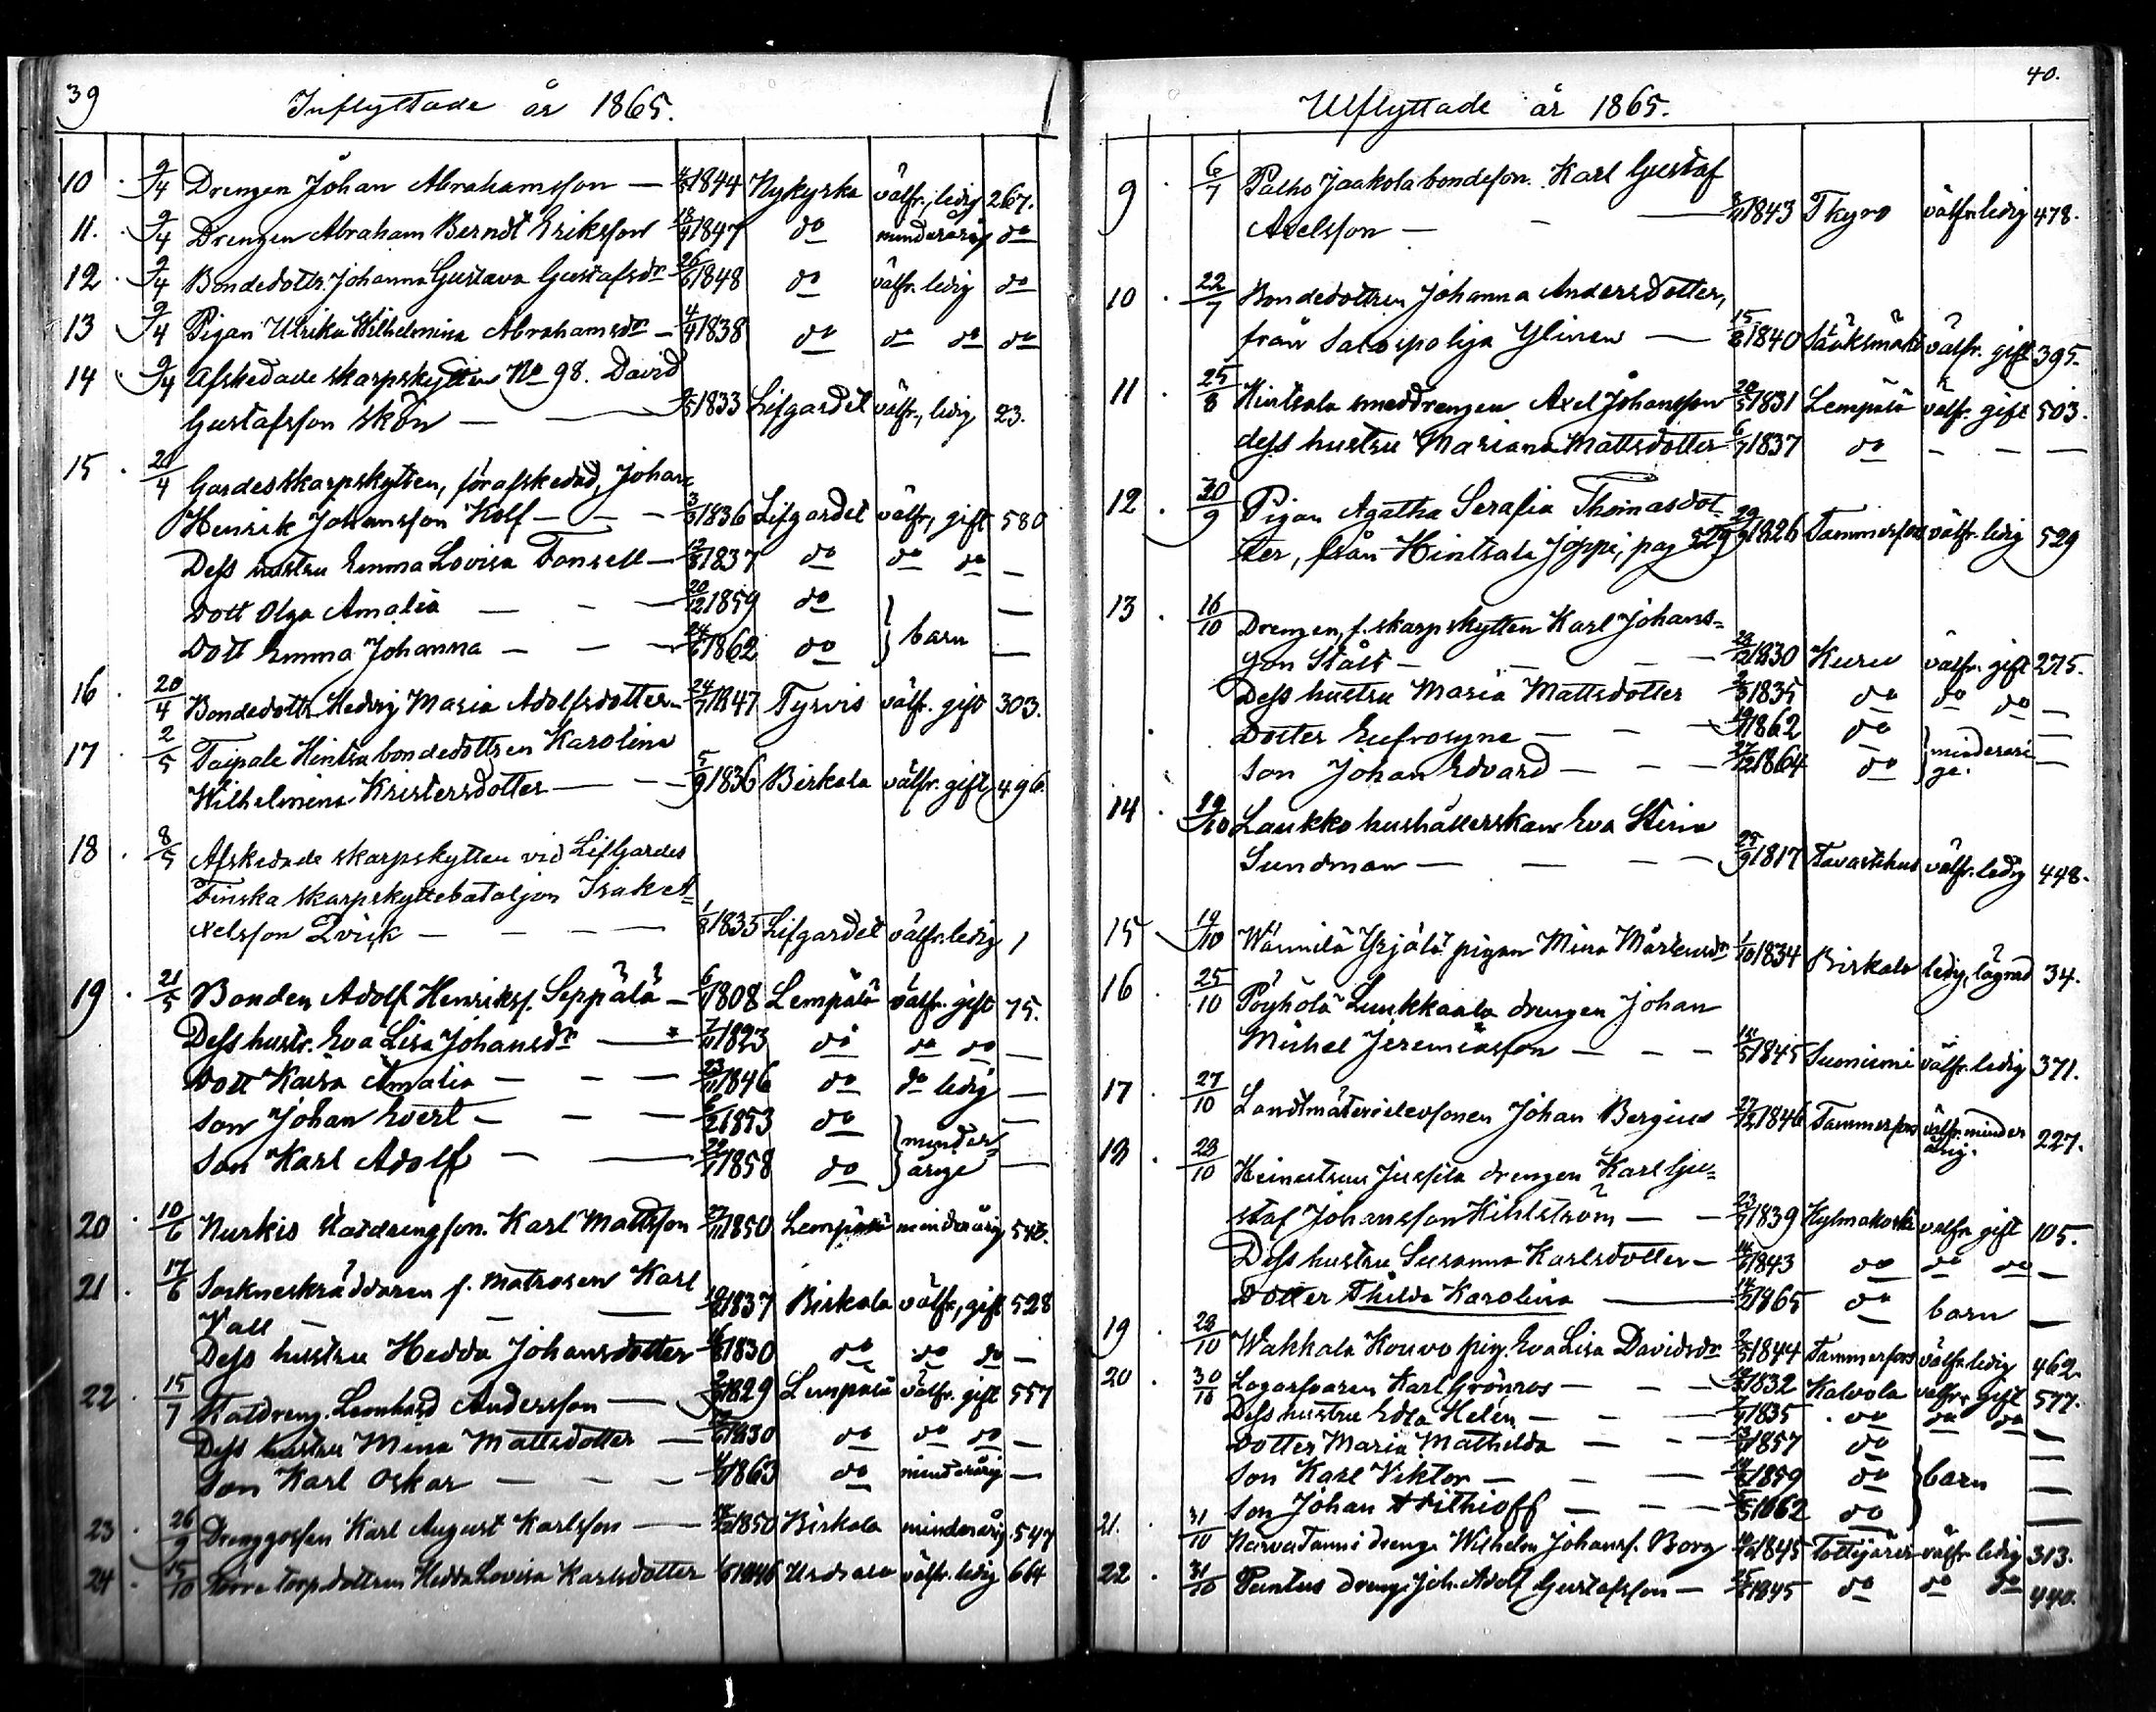 39
Inflyttade år 1865.
10 . 9/4 Drengen Johan Abrahamsson — 1844 Nykyrka välfr., ledig 267.
11. 9/4 Drengen Abraham Berndt Eriksson 1847 do minderårig do
12 . 9/4 Bondedottr. Johanna Gustava Gustafsdr 1848 do välfr. ledig do
13 9/4 Pigan Ulrika Wilhelmina Abrahamsdr — 4/4 1838 do do do do
14 9/4 Afskedade skarpskytten No 98. David
Gustafsson Skön — — 1833 Lifgardet välfr., ledig 23.
15 . 20/4 Gardesskarpskytten, förafskedad, Johan
Henrik Johansson Kolf — — — 3/3 1836 Lifgardet välfr., gift 580
Dess hustru Emma Lovisa Fonsell — 1837 do do do —
Dott Olga Amalia — — — 20/12 1859 do —
Dott Emma Johanna — — — 1862 do } barn —
16 . 20/4 Bondedottr. Hedvig Maria Adolfsdotter — 1847 Tyrvis välfr. gift 303.
17 . 2/5 Taipale Hintsa bondedottren Karolina
Wilhelmina Kristersdotter — — 5/9 1836 Birkala välfr. gift 496
18 . 8/5 Afskedade skarpskytten vid Lifgardes
Finska skarpskyttebataljon Isak A=
xelsson Qvick — — — — 1835 Lifgardet välfr. ledig 1
19 . 21/5 Bonden Adolf Henrikss. Seppälä — 1808 Lempälä välfr. gift 75.
Dess hustr. Eva Lisa Johansdr — 1823 do do do —
Dott Kaisa Amalia — — — 1846 do do ledig —
Son Johan Evert — — — 1853 do —
Son Karl Adolf — — 1858 do } minder= årige —
20 . 10/6 Nurkis statdrengson. Karl Mattsson 1850 Lempälä minderårig
21 . 17/6 Sockneskräddaren f. Matrosen Karl
Vall — — — 1837 Birkala välfr., gift 528
Dess hustru Hedda Johansdotter 1830 do do do —
22 . 15/7 Statdreng. Leonhard Andersson — 1829 Lempälä välfr. gift 557
Dess hustru Mina Mattsdotter — 1830 do do do —
Son Karl Oskar — — — 1863 do minderårig —
23 . 26/9 Drenggossen Karl August Karlsson — 1850 Birkala minderårig. 547
24 . 15/10 torp.dottren Hedda Lovisa Karlsdotter 1846 välfr. ledig 664
40.
Utflyttade år 1865.
9 . 6/7 Palho Jaakola bondeson. Karl Gustaf
Axelsson — — — 1843 Thyro välfr. ledig 478.
10 . 22/7 Bondedottren Johanna Andersdotter,
från Sarospohja Ylinen — 1840 Sääksmäki välfr. gift 395.
11 . 25/8 Hintsala smeddrengen Axel Johansson 1831 Lempälä välfr. gift 503.
dess hustru Mariana Mattsdotter 1837 do — — —
12 . 30/9 Pigan Agatha Serafia Thomasdot=
ter, från Hintsala Joppi, pag 529 1826 Tammerfors välfr. ledig 529
13 . 16/10 Drengen, f. skarpskytten Karl Johans=
son Stålt — — — 1830 Kuru välfr. gift 275.
Dess hustru Maria Mattsdotter 1835 do do do —
Dotter Eufrosyne — — — 1862 do —
Son Johan Edvard — — — 1864 do } minderåri ge. —
14 . 19/10 Laukko hushållerskan Eva Stina
Sundman — — — 1817 Tavastehus välfr. ledig 448.
15 19/10 Wännilä Yrjälä pigan Mina Mårtensdr 1/10 1834 Birkala ledig, lägrad 34.
16 . 25/10 Pöyhölä Luukkaala drengen Johan
Mickel Jeremiasson — — — 1845 Suoniemi välfr. ledig 371.
17 . 27/10 Landtmäterielevsonen Johan Bergius 27/12 1846 Tammerfors välfr. minder årig. 227.
18 . 28/10 Jussila drengen Karl Gu=
staf Johansson Kihlström — — 1839 Kylmäkoski välfr. gift 105.
Dess hustru Susanna Karlsdotter — 1843 do do do —
Dotter Thilda Karolina — 1865 do barn —
19 . 28/10 Wahkala Kouvo pig. Eva Lisa Davidsdr 1844 Tammerfors välfr. ledig 462.
20 . 30/10 Karl Grönros — — — 1832 Kalvola välfr. gift 577.
Dess hustru Edla Helén — — — 1835 . do do do
Dotter Maria Mathilda — — 1857 do —
Son Karl Viktor — — — 1859 do } barn —
Son Johan Frithioff — — 1862 do —
21. 31/10 Narva Tanni dreng. Wilhelm Johanss. Borg 1845 Tottijärvi välfr. ledig 313.
22 . 31/10 Puntus dreng. Joh. Adolf Gustafsson — 1845 do do do 440.